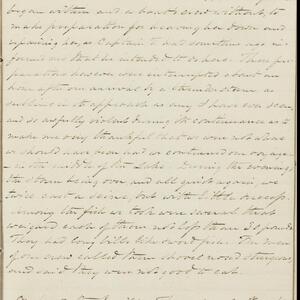 began within and a boat's crew without, to
make preparation for heaving her down and
repairing her, as Captain T. had sometime ago in-
formed me that he intended to do here. Their pre-
parations however were interrupted about an
hour after our arrival by a thunder storm as
sublime in its approach as any I have ever seen,
and so awfully violent during its continuance as to
make me very thankful that we were not alone
on shore nor
in the middle of the Lake. During the evening,
the storm being over and all quiet again, we
twice cast a seine, but with little success.
Among the fish we took were several that
weighed each of them not less than 30 pounds.
They had long bills like sword fish. The men
of our crew called them shovel nosed sturgeons,
and said they were not good to eat.